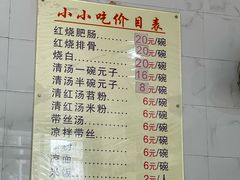 小小吃价目表
红烧肥肠 20元/碗
红烧排骨 20元/碗
烧白 20元/碗
清汤一碗元子 16元/碗
清汤半碗元子 8元/碗
清红汤苕粉 6元/碗
清红汤米粉 6元/碗
带丝汤 6元/碗
凉拌带丝 6元/碗
6元/碗
面 6元/碗
饭 2元/人